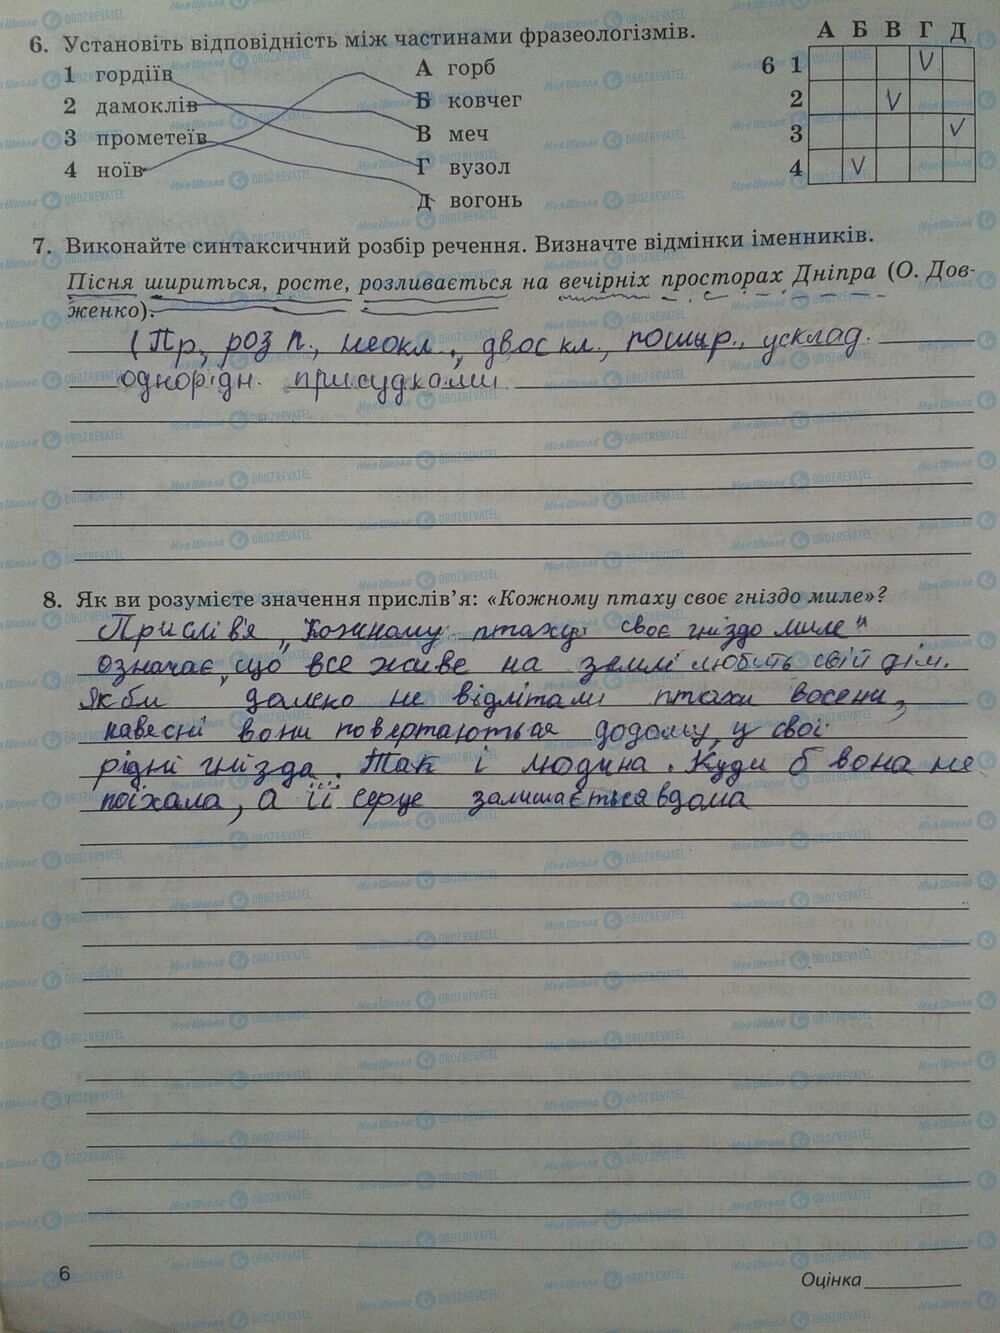 6. Установіть відповідність між частинами фразеологізмів.
1 гордіїв
2 дамоклів
3 прометеїв
4 ноїв
А горб
Б ковчег
В меч
Г вузол
Д вогонь
А Б В Г Д
6 1 V
2 V
3 V
4 V
7. Виконайте синтаксичний розбір речення. Визначте відмінки іменників.
Пісня шириться, росте, розливається на вечірніх просторах Дніпра (О. Дов-
женко).
(Пр., розп., неокл., двоскл., пошир., усклад.
однорідн. присудками.
8. Як ви розумієте значення прислів'я: «Кожному птаху своє гніздо миле»?
Прислів'я „Кожному птаху своє гніздо миле"
означає, що все живе на землі любить свій дім.
Якби далеко не відлітали птахи восени,
навесні вони повертаються додому, у свої
рідні гнізда. Так і людина. Куди б вона не
поїхала, а її серце залишається вдома
6
Оцінка
МояШкола OBOZREVATEL